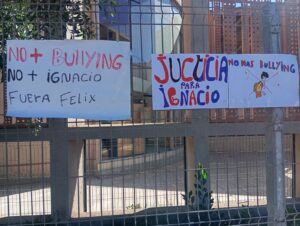 NO + BULLYING
NO + IGNACIO
FUERA FELIX
JUCTICIA
PARA
IGNACIO
NO MAS BULLYING